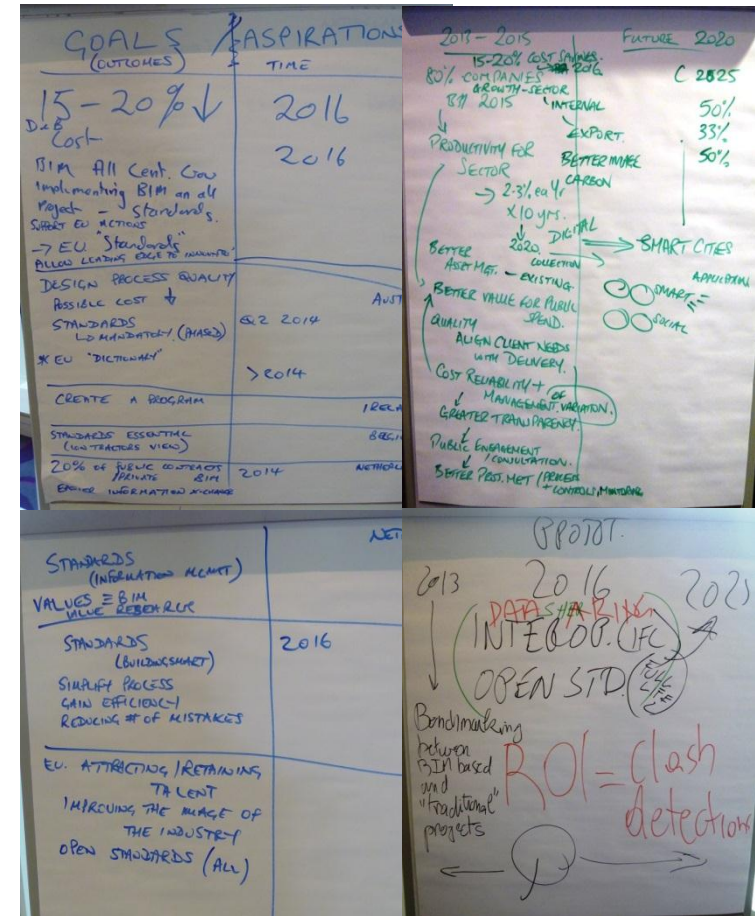 GOALS / ASPIRATIONS
(OUTCOMES) TIME
15-20% ↓ 2016
D&B
Cost
2016
BIM All Cent. Gov
Implementing BIM on all
Project - Standards.
SUPPORT EU ACTIONS
→ EU "Standards"
ALLOW LEADING EDGE TO INNOVATE
DESIGN PROCESS QUALITY
POSSIBLE COST ↓
AUST
STANDARDS Q2 2014
↳ MANDATORY. (PHASED)
* EU "DICTIONARY"
>2014
CREATE A PROGRAM
IRELA
STANDARDS ESSENTIAL
(CONTRACTORS VIEW)
BELGI
20% OF PUBLIC CONTRACTS 2014 NETHERL
/PRIVATE BIM
EASIER INFORMATION XCHANGE
2013 - 2015 FUTURE 2020
15-20% COST SAVINGS.
2016
80% COMPANIES C 2025
GROWTH-SECTOR
BIM 2015 INTERNAL 50%
EXPORT. 33%
PRODUCTIVITY FOR BETTER IMAGE 50%
SECTOR CARBON
→ 2-3% ea Yr
X 10 yrs.
↓
2020. DIGITAL ⇒ SMART CITES
BETTER COLLECTION →
ASSET MGT. - EXISTING. APPLICATION
BETTER VALUE FOR PUBLIC SMART
SPEND.
QUALITY SOCIAL
ALIGN CLIENT NEEDS
WITH DELIVERY.
COST RELIABILITY + OF
MANAGEMENT. VARIATION.
GREATER TRANSPARENCY.
PUBLIC ENGAGEMENT
/CONSULTATION.
BETTER PROJ. MGT / PROCESS
+ CONTROLS, MONITORING
NET
STANDARDS
(INFORMATION MGMT)
VALUES ≡ BIM
VALUE RESEARCH
STANDARDS 2016
(BUILDINGSMART)
SIMPLIFY PROCESS
GAIN EFFICIENCY
REDUCING # OF MISTAKES
EU. ATTRACTING/RETAINING
TALENT
IMPROVING THE IMAGE OF
THE INDUSTRY
OPEN STANDARDS (ALL)
2013 2016 202
DATA SHARING
INTEROP. (IFC)
OPEN STD.
Benchmarking
between
BIM based
and
"traditional"
projects
ROI = Clash
detection